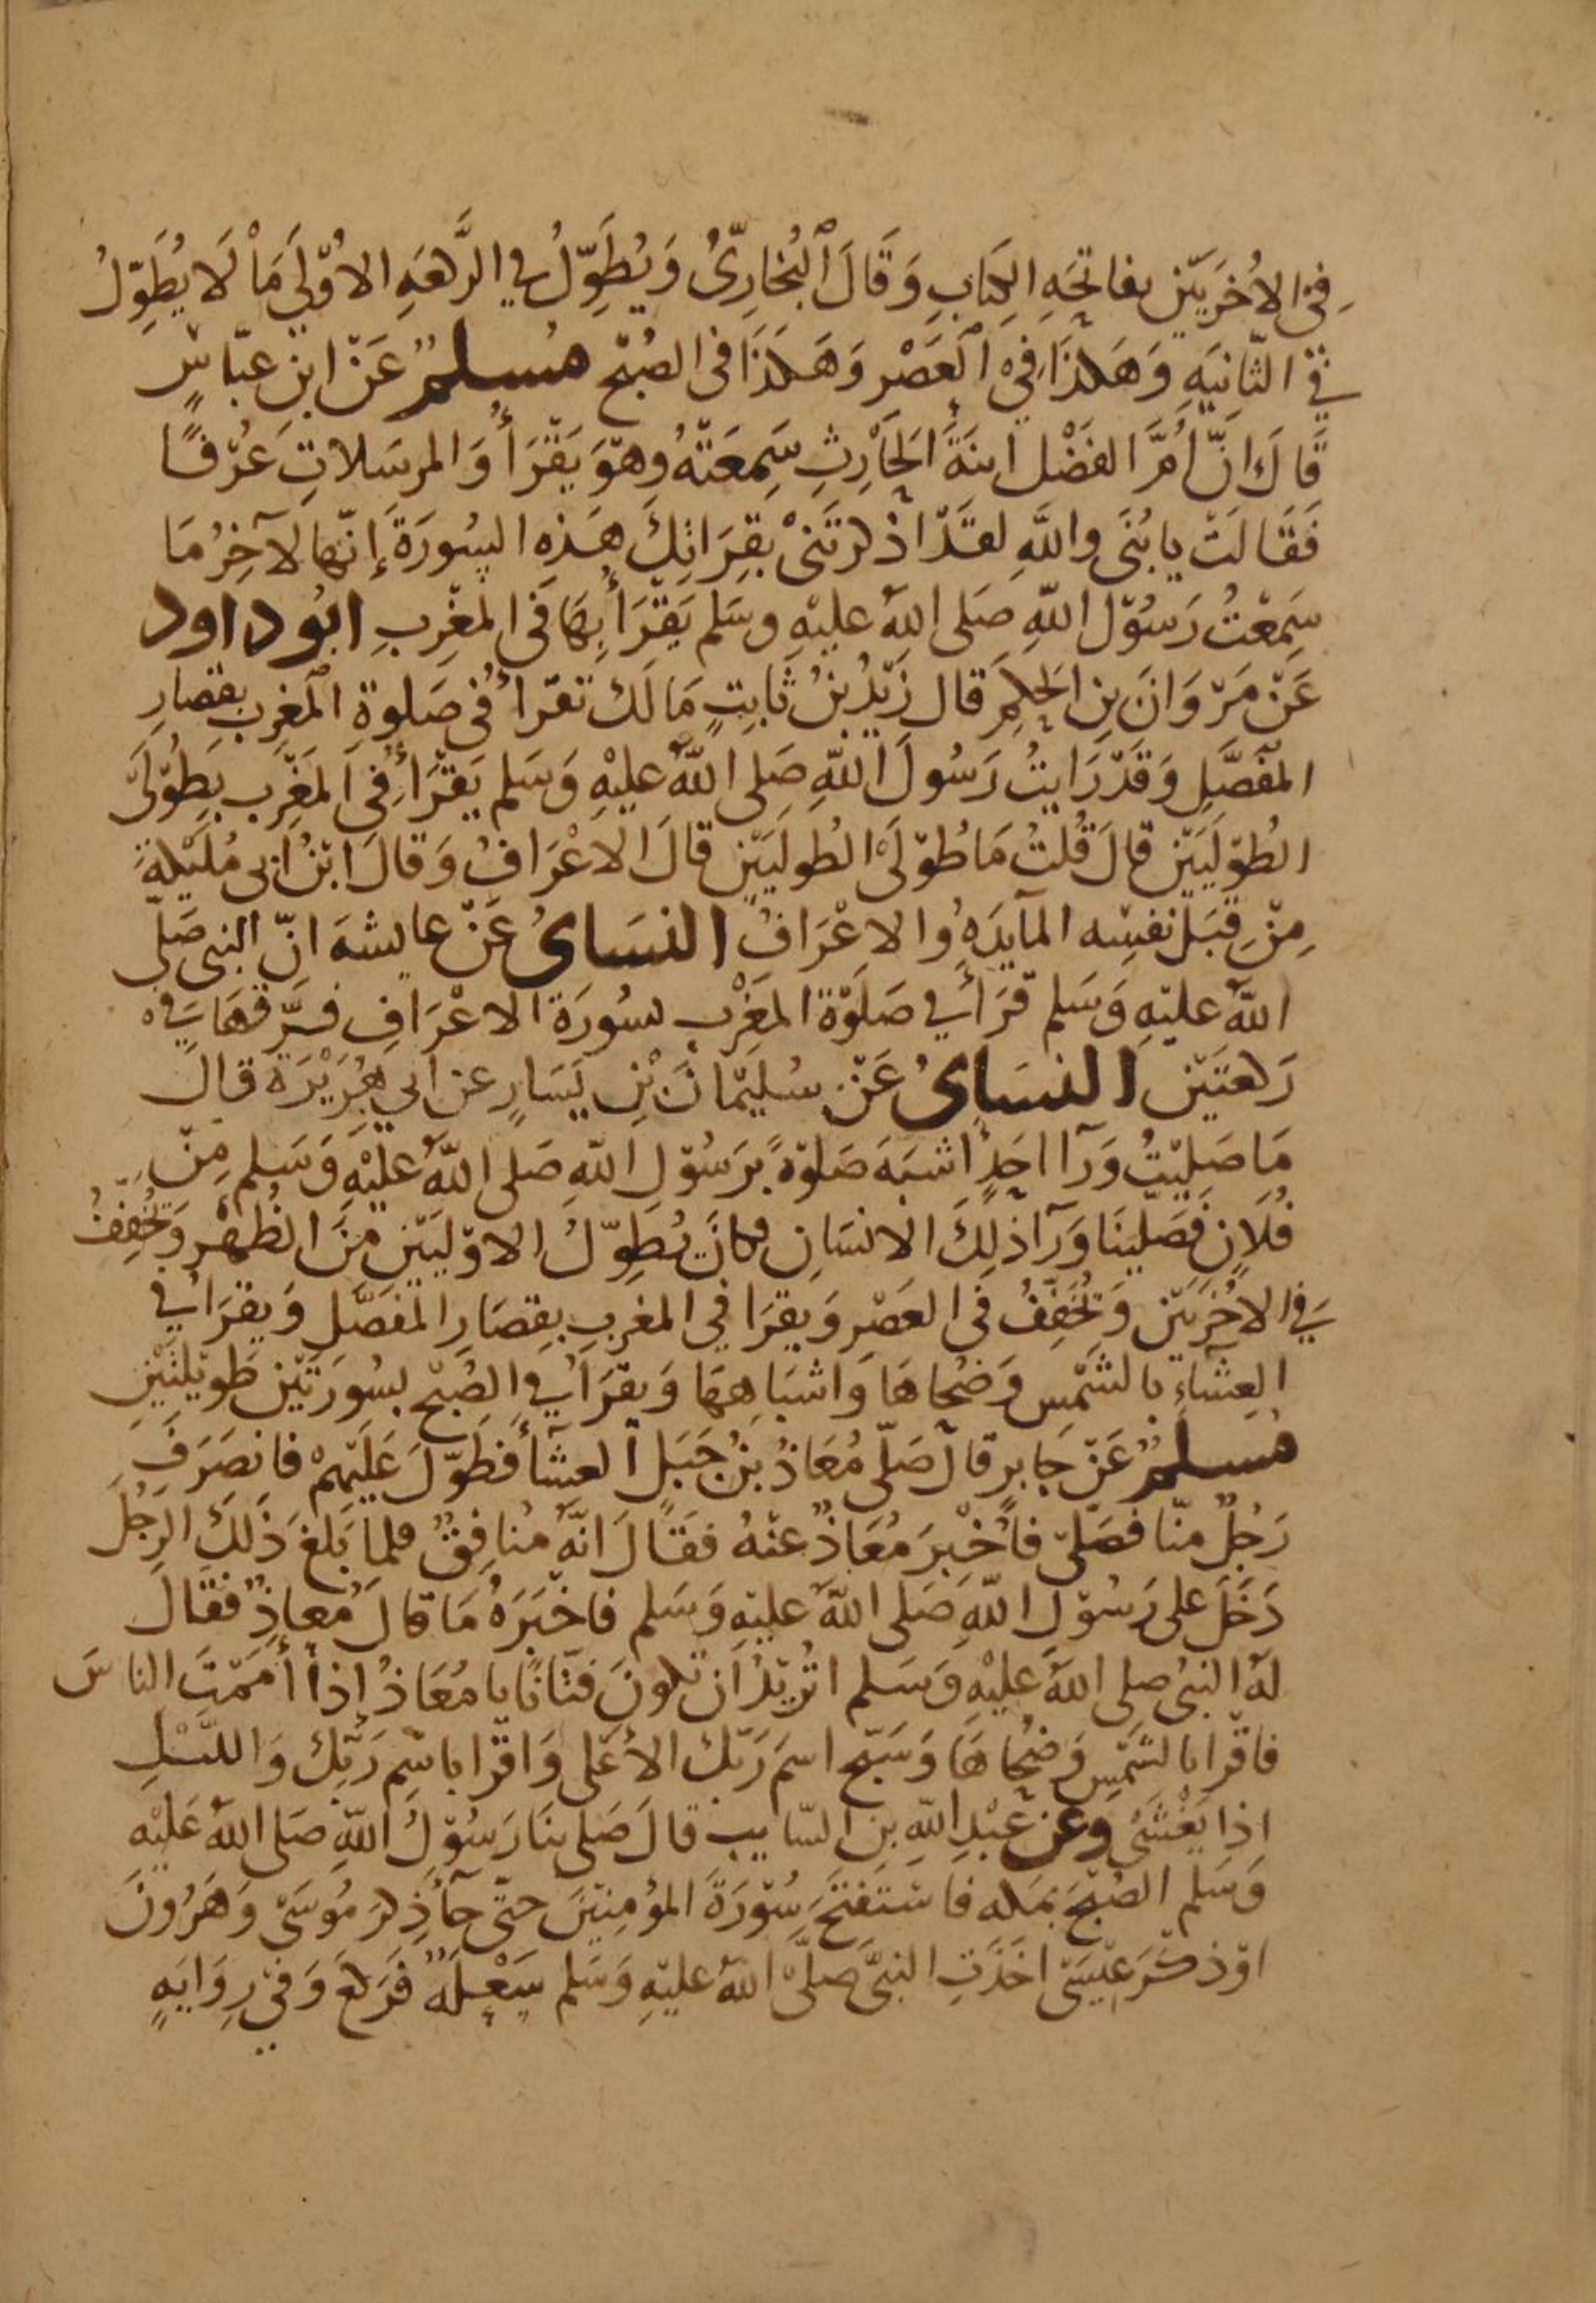 في الأُخرَيَين بفاتحَهِ الكتابِ وَقَالَ البُخارِيُّ وَيُطَوِّلُ في الرَّكعَهِ الاُوْلَى مَا لَا يُطَوِّلُ
في الثّانيَهِ وَهَكذَا فِي العَصْرِ وَهَكذَا فى الصُبْحِ مُسلمٌ عَنْ ابنِ عبّاسٍ
قَالَ انَّ أُمَّ الفَضْل ابنَةَ الحَارِثِ سَمِعَتْهُ وهوَ يَقْرَأُ وَالمرسَلاتِ عُرْفًا
فَقَالَتْ يا بُنَيَّ واللَّهِ لقَدْ اذكرتَنى بقِرَاتِكَ هَذِهِ السُورَةَ إنّها لآخِرُ مَا
سَمِعْتُ رَسُوْلَ اللَّهِ صَلى اللهُ عليْهِ وسَلم يَقْرَأُ بِهَا فى المغْرِبِ ابُو داود
عَنْ مَرْوَانَ بنِ الحكمِ قال زَيْدُ بنُ ثَابِتٍ مَالَكَ تقرأُ فى صَلوةِ المَغرِبِ بقصَارِ
المفَصَّلِ وَقَدْ رَايتُ رَسُولَ اللهِ صَلى اللهُ عليْهِ وَسَلم يَقْرَأُ فى المَغْرِبِ بطُوْلَى
الطُوْلَيَيْن قالَ قُلتُ مَا طُوْلَى الطُوليَيْنِ قالَ الاعْرَافُ وَقالَ ابْنُ ابى مُلَيْكةَ
مِنْ قِبَلِ نفسِه المآيدَهُ والاعْرَافُ النسَاىُ عَنْ عايشهَ انّ النبى صَلى
اللهُ عليْهِ وَسَلم قَرَأَ في صَلوْةِ المَغْرِب بسُورَةِ الاعْرَافِ فرَّقهَا في
رَكعتَيْن النسَاىُ عَنْ سُليْمَانَ بْنِ يَسَارٍ عن ابي هُرَيْرَةَ قالَ
مَا صَليْتُ وَرَآ احَدٍ اشبَهَ صَلوْةً برَسُوْلِ اللهِ صَلى اللهُ عليْهِ وَسَلم مِنْ
فُلَانٍ فَصَلينَا وَرَآ ذلِكَ الانسَانِ فكانَ يُطَوِّلُ الاوْليَيْنِ مِنَ الظُهْرِ وَيُخفِفُ
في الاُخرَيَيْن وَيُخَفِّفُ فى العَصْرِ وَيقرَا فى المغرِبِ بِقِصَارِ المُفصَّلِ وَيقرَا في
العِشَآءِ بالشَمْسِ وَضُحَاهَا وَاشبَاهِهَا وَيقرَا في الصُبْح بسُورَتَيْن طَويْلتَيْنِ
مُسلمٌ عَنْ جَابرٍ قالَ صَلّى مُعَاذُ بنُ جَبَلٍ العشآَ فطَوَّلَ عَلَيْهِمْ فانصَرَفَ
رَجُلٌ مِنّا فصَلّى فأُخْبِرَ مُعَاذٌ عنْهُ فقَالَ انّهُ مُنافِقٌ فلمَا بَلغَ ذَلِكَ الرجُلَ
دَخَلَ على رَسُوْلِ اللّهِ صَلى اللهُ عليْهِ وَسَلم فاخبَرَهُ مَا قالَ مُعاذٌ فقالَ
لهُ النبىُ صلى اللهُ عَليْهِ وَسَلم اتُرِيْدُ ان تكونَ فتّانًا يا مُعَاذُ إذا أمَمْتَ الناسَ
فاقرا بالشَمْسِ وَضُحَاهَا وَسَبّح اسمَ رَبّكَ الأعْلى وَاقْرا باسْمِ رَبّكَ وَالليْلِ
اِذا يَغْشَى وعَن عَبْدِ اللهِ بن السّايب قالَ صَلى بنَا رَسُوْلُ اللّهِ صَلى اللهُ عَليْهِ
وَسَلم الصُبْحَ بمَكه فاستَفتَحَ سُوْرَةَ المؤمِنيْنَ حتّى جآ ذِكرُ مُوسَى وَهَرُونَ
اوْ ذكرُ عيْسَى اخَذَتِ النبىَّ صلّى اللهُ عليْهِ وَسَلم سَعْلَةٌ فَركَعَ وَفي رِوَايَهٍ